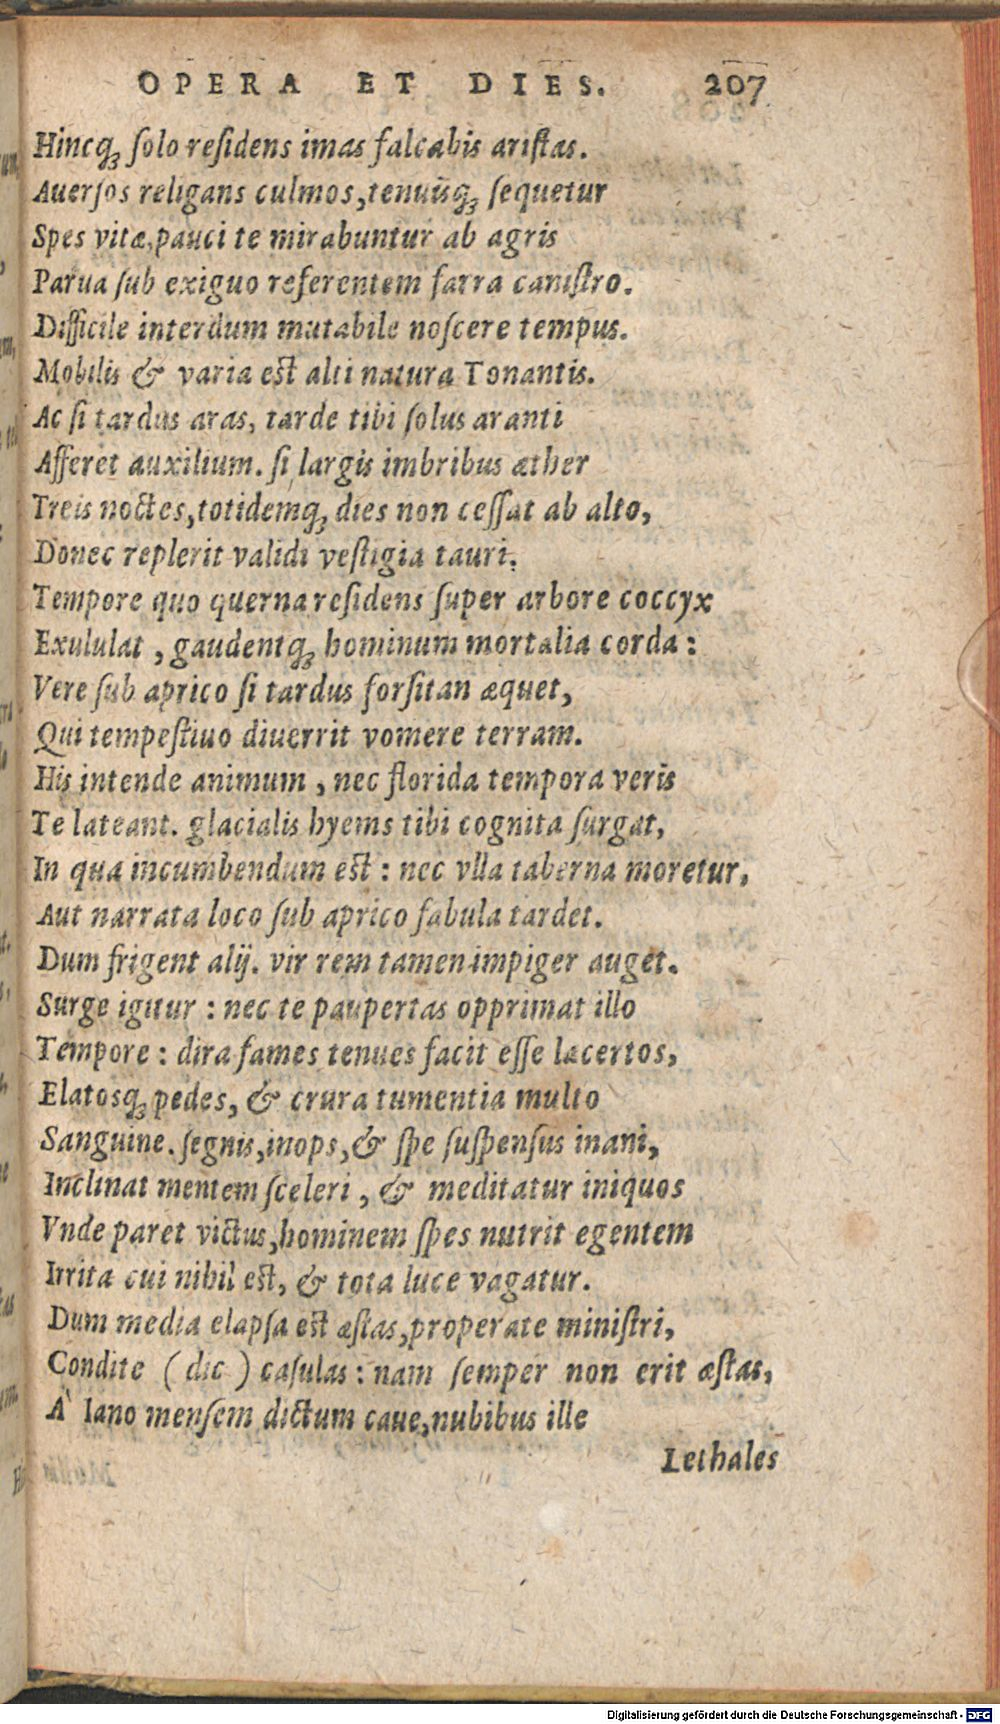 OPERA ET DIES. 207
Hincq́ꝫ ſolo reſidens imas falcabis ariſtas.
Auerſos religans culmos, tenuisq́ꝫ ſequetur
Spes vitæ, pauci te mirabuntur ab agris
Parua ſub exiguo referentem farra caniſtro.
Difficile interdum mutabile noſcere tempus.
Mobilis & varia est alti natura Tonantis.
Ac ſi tardus aras, tarde tibi ſolus aranti
Afferet auxilium. ſi largis imbribus æther
Treis noctes, totidemq́ꝫ dies non ceſſat ab alto,
Donec replerit validi veſtigia tauri.
Tempore quo querna reſidens ſuper arbore coccyx
Exululat, gaudentq́ꝫ hominum mortalia corda:
Vere ſub aprico ſi tardus forſitan æquet,
Qui tempeſtiuo diuerrit vomere terram.
His intende animum, nec florida tempora veris
Te lateant. glacialis hyems tibi cognita ſurgat,
In qua incumbendum est: nec vlla taberna moretur,
Aut narrata loco ſub aprico fabula tardet.
Dum frigent alij. vir rem tamen impiger auget.
Surge igitur: nec te paupertas opprimat illo
Tempore: dira fames tenues facit eſſe lacertos,
Elatosq́ꝫ pedes, & crura tumentia multo
Sanguine. ſegnis, inops, & ſpe ſuſpenſus inani,
Inclinat mentem ſceleri, & meditatur iniquos
Vnde paret victus, hominem ſpes nutrit egentem
Irrita cui nihil est, & tota luce vagatur.
Dum media elapſa est æſtas, properate miniſtri,
Condite (dic) caſulas: nam ſemper non erit æſtas,
A` Iano menſem dictum caue, nubibus ille
Lethales
Digitalisierung gefördert durch die Deutsche Forschungsgemeinschaft - DFG